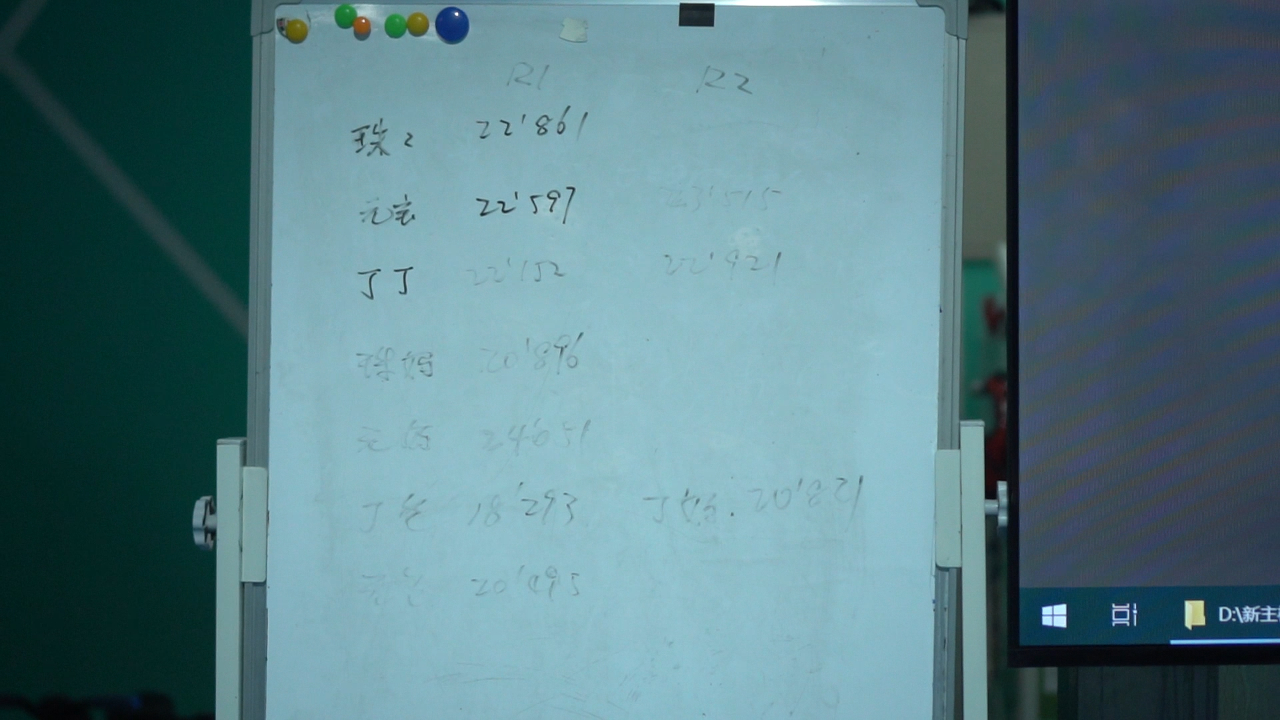 R1 R2
珠2 22'861
元宝 22'597 23'515
丁丁 22'152 22'921
珠妈 20'896
元妈 24'651
丁爸 18'293 丁妈. 20'821
元爸 20'495
D:\新主